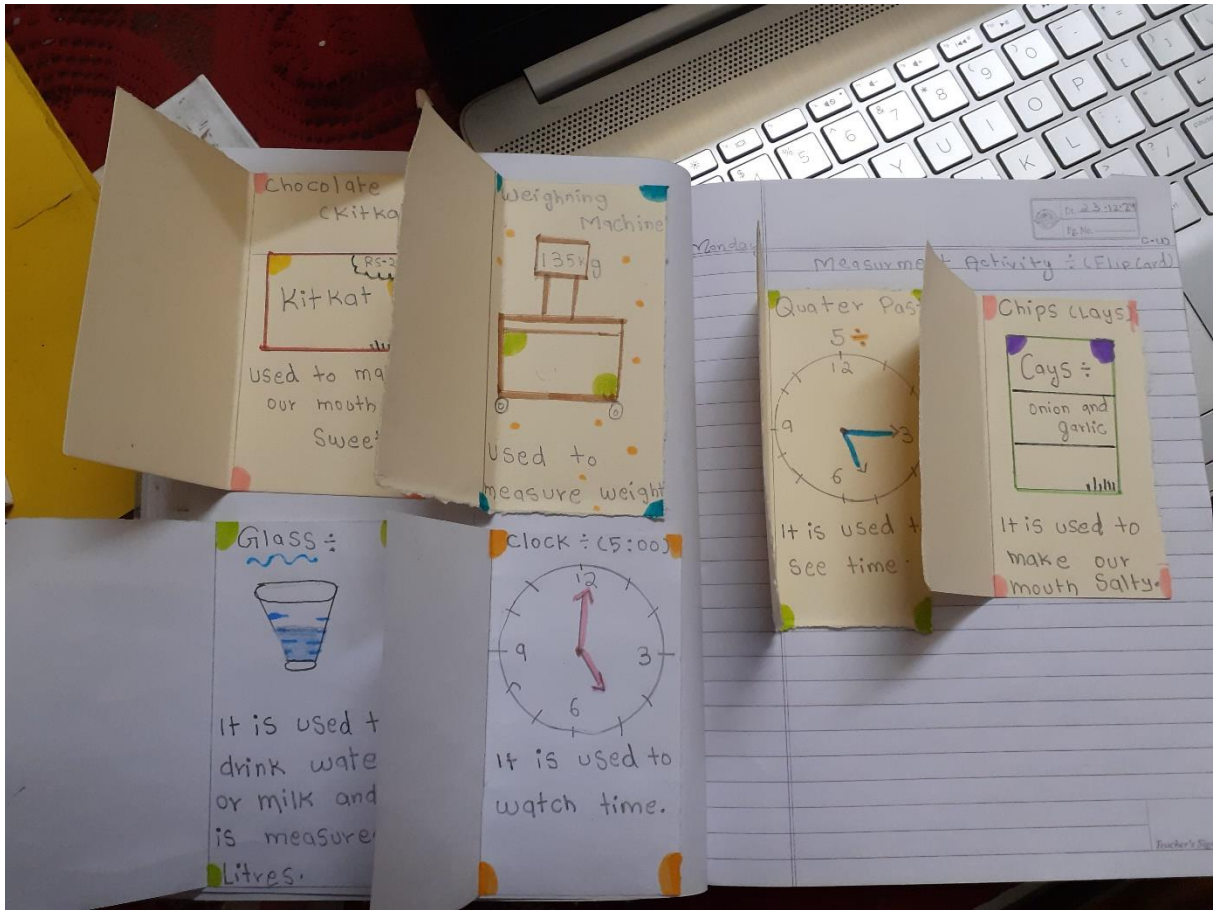 Chocolate
(Kitka
RS-2
Kitkat
used to ma
our mouth
Swee
Weighning
Machine
135kg
Used to
measure weight
Glass ÷
It is used t
drink wate
or milk and
is measure
Litres.
Clock ÷ (5:00)
12
9
3
6
It is used to
watch time.
Dt. 23-12-24
Pg. No.
C-W
Monday
Measurment Activity ÷ (Flip Card)
Quater Pas
5 ÷
12
9
3
6
It is used t
see time.
Chips (Lays)
Cays ÷
onion and
garlic
It is used to
make our
mouth Salty.
5
6
7
8
9
0
Y
U
I
O
P
K
L